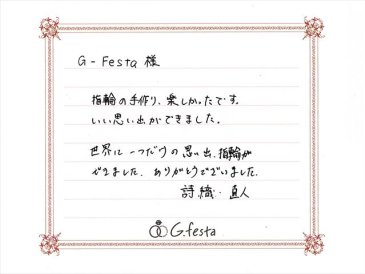 G-Festa 様
指輪の手作り、楽しかったです。
いい思い出ができました。
世界に一つだけの思い出、指輪が
できました。ありがとうございました。
詩織・直人
G.festa